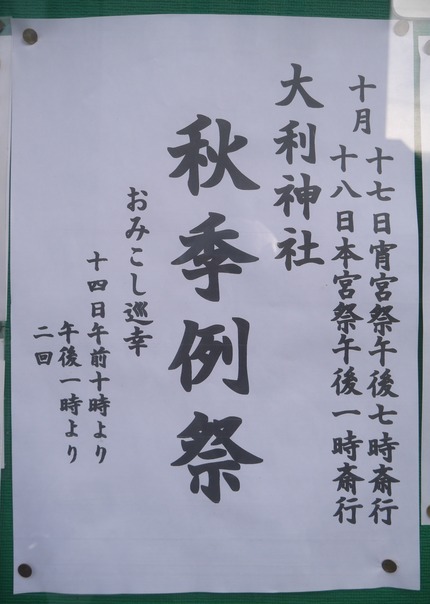 十月
十七日宵宮祭午後七時斎行
十八日本宮祭午後一時斎行
大利神社
秋季例祭
おみこし巡幸
十四日午前十時より
午後一時より
二回